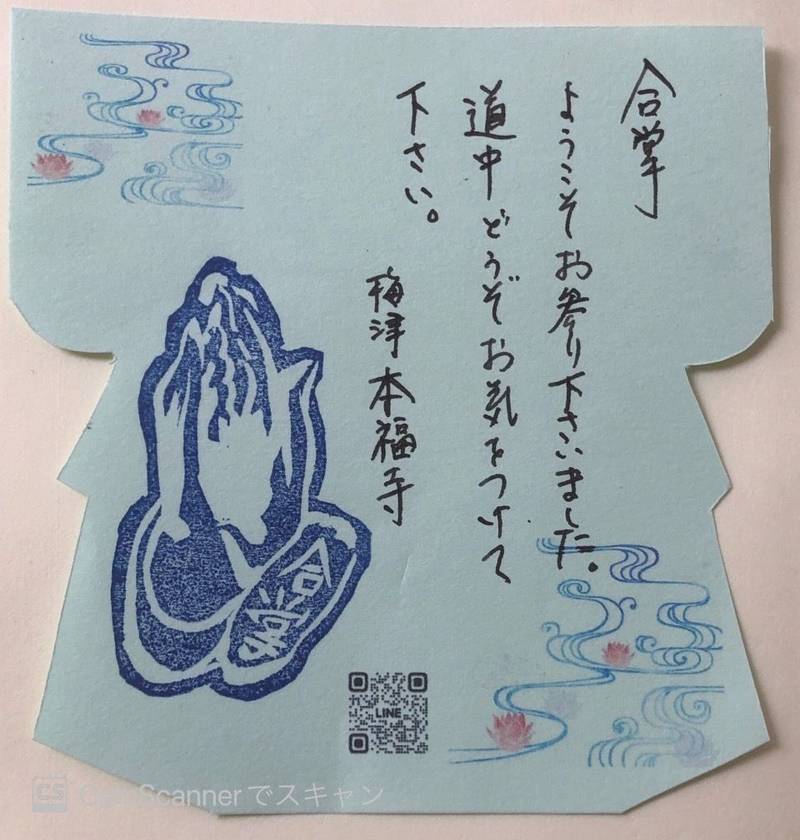 合掌
ようこそお参り下さいました。
道中どうぞお気をつけて
下さい。
梅津 本福寺
合掌
LINE
CS CamScannerでスキャン